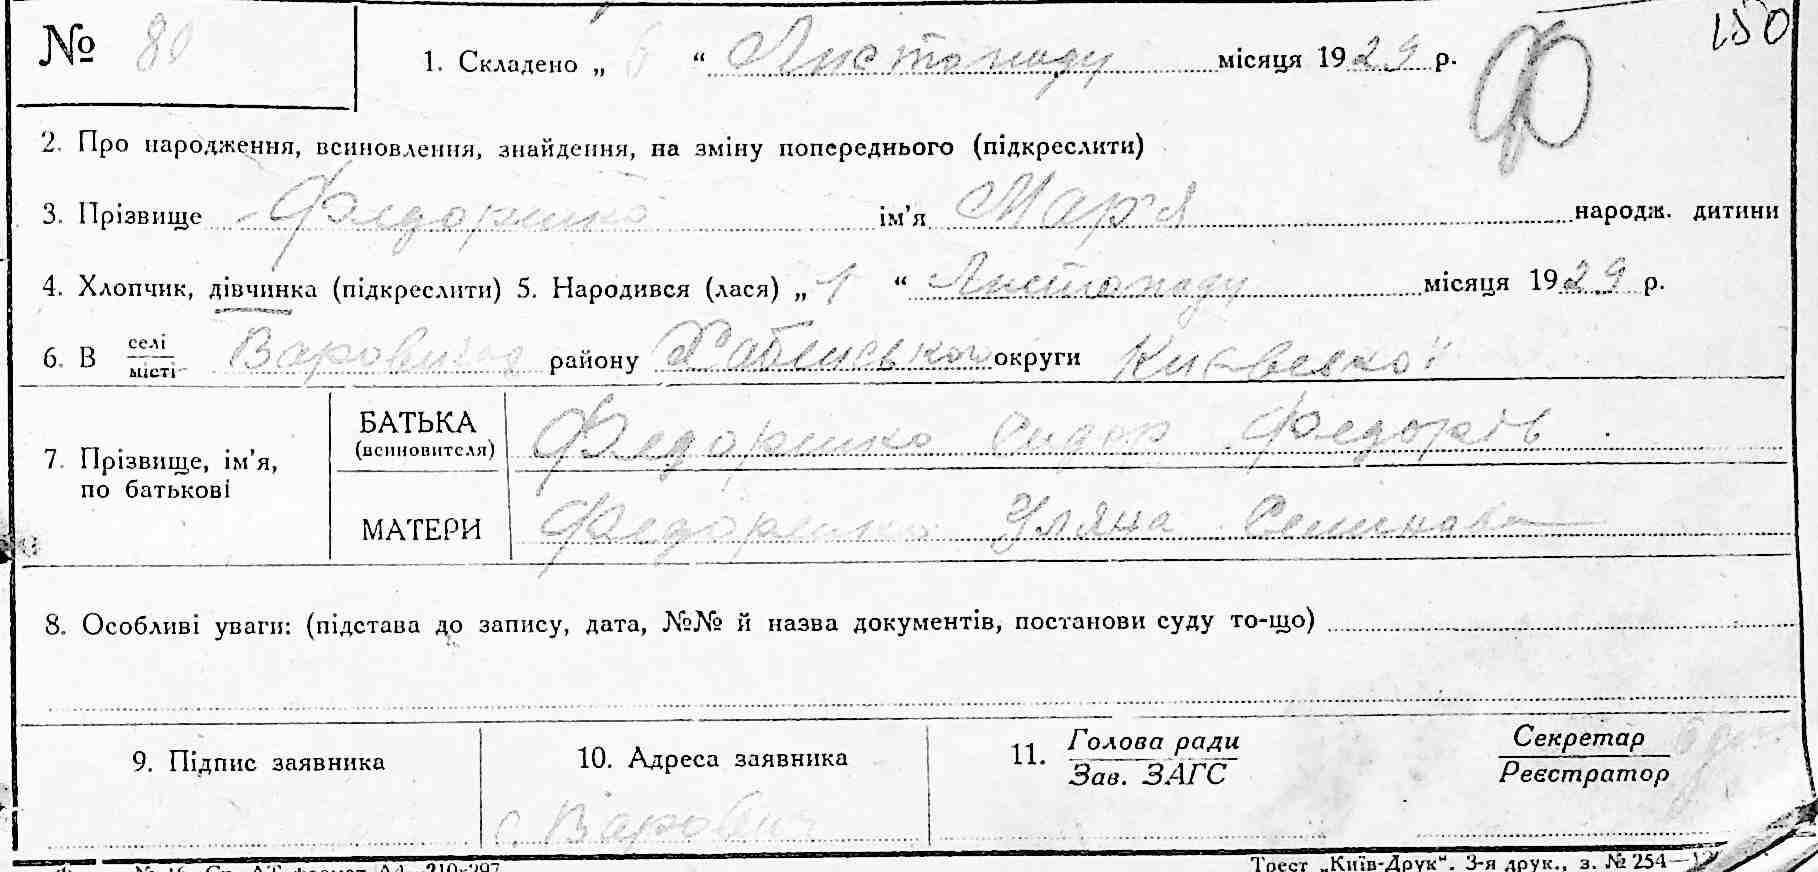 150
№ 80
1. Складено „ 6 “ Листопаду місяця 1929 р. Ф
2. Про народження, всиновлення, знайдення, на зміну попереднього (підкреслити)
3. Прізвище Федоренко ім’я Мар'я народж. дитини
4. Хлопчик, дівчинка (підкреслити) 5. Народився (лася) „ 1 “ Листопаду місяця 1929 р.
6. В селі/місті Варовичах району Хабенського округи Київської
7. Прізвище, ім’я, по батькові
БАТЬКА (всиновителя) Федоренко Сидор Федорів
МАТЕРИ Федоренко Уляна Семенова
8. Особливі уваги: (підстава до запису, дата, №№ й назва документів, постанови суду то-що)
9. Підпис заявника
10. Адреса заявника
с. Варовичі
11. Голова ради
Зав. ЗАГС
Секретар
Реєстратор
Трест „Київ-Друк“. 3-я друк., з. № 254